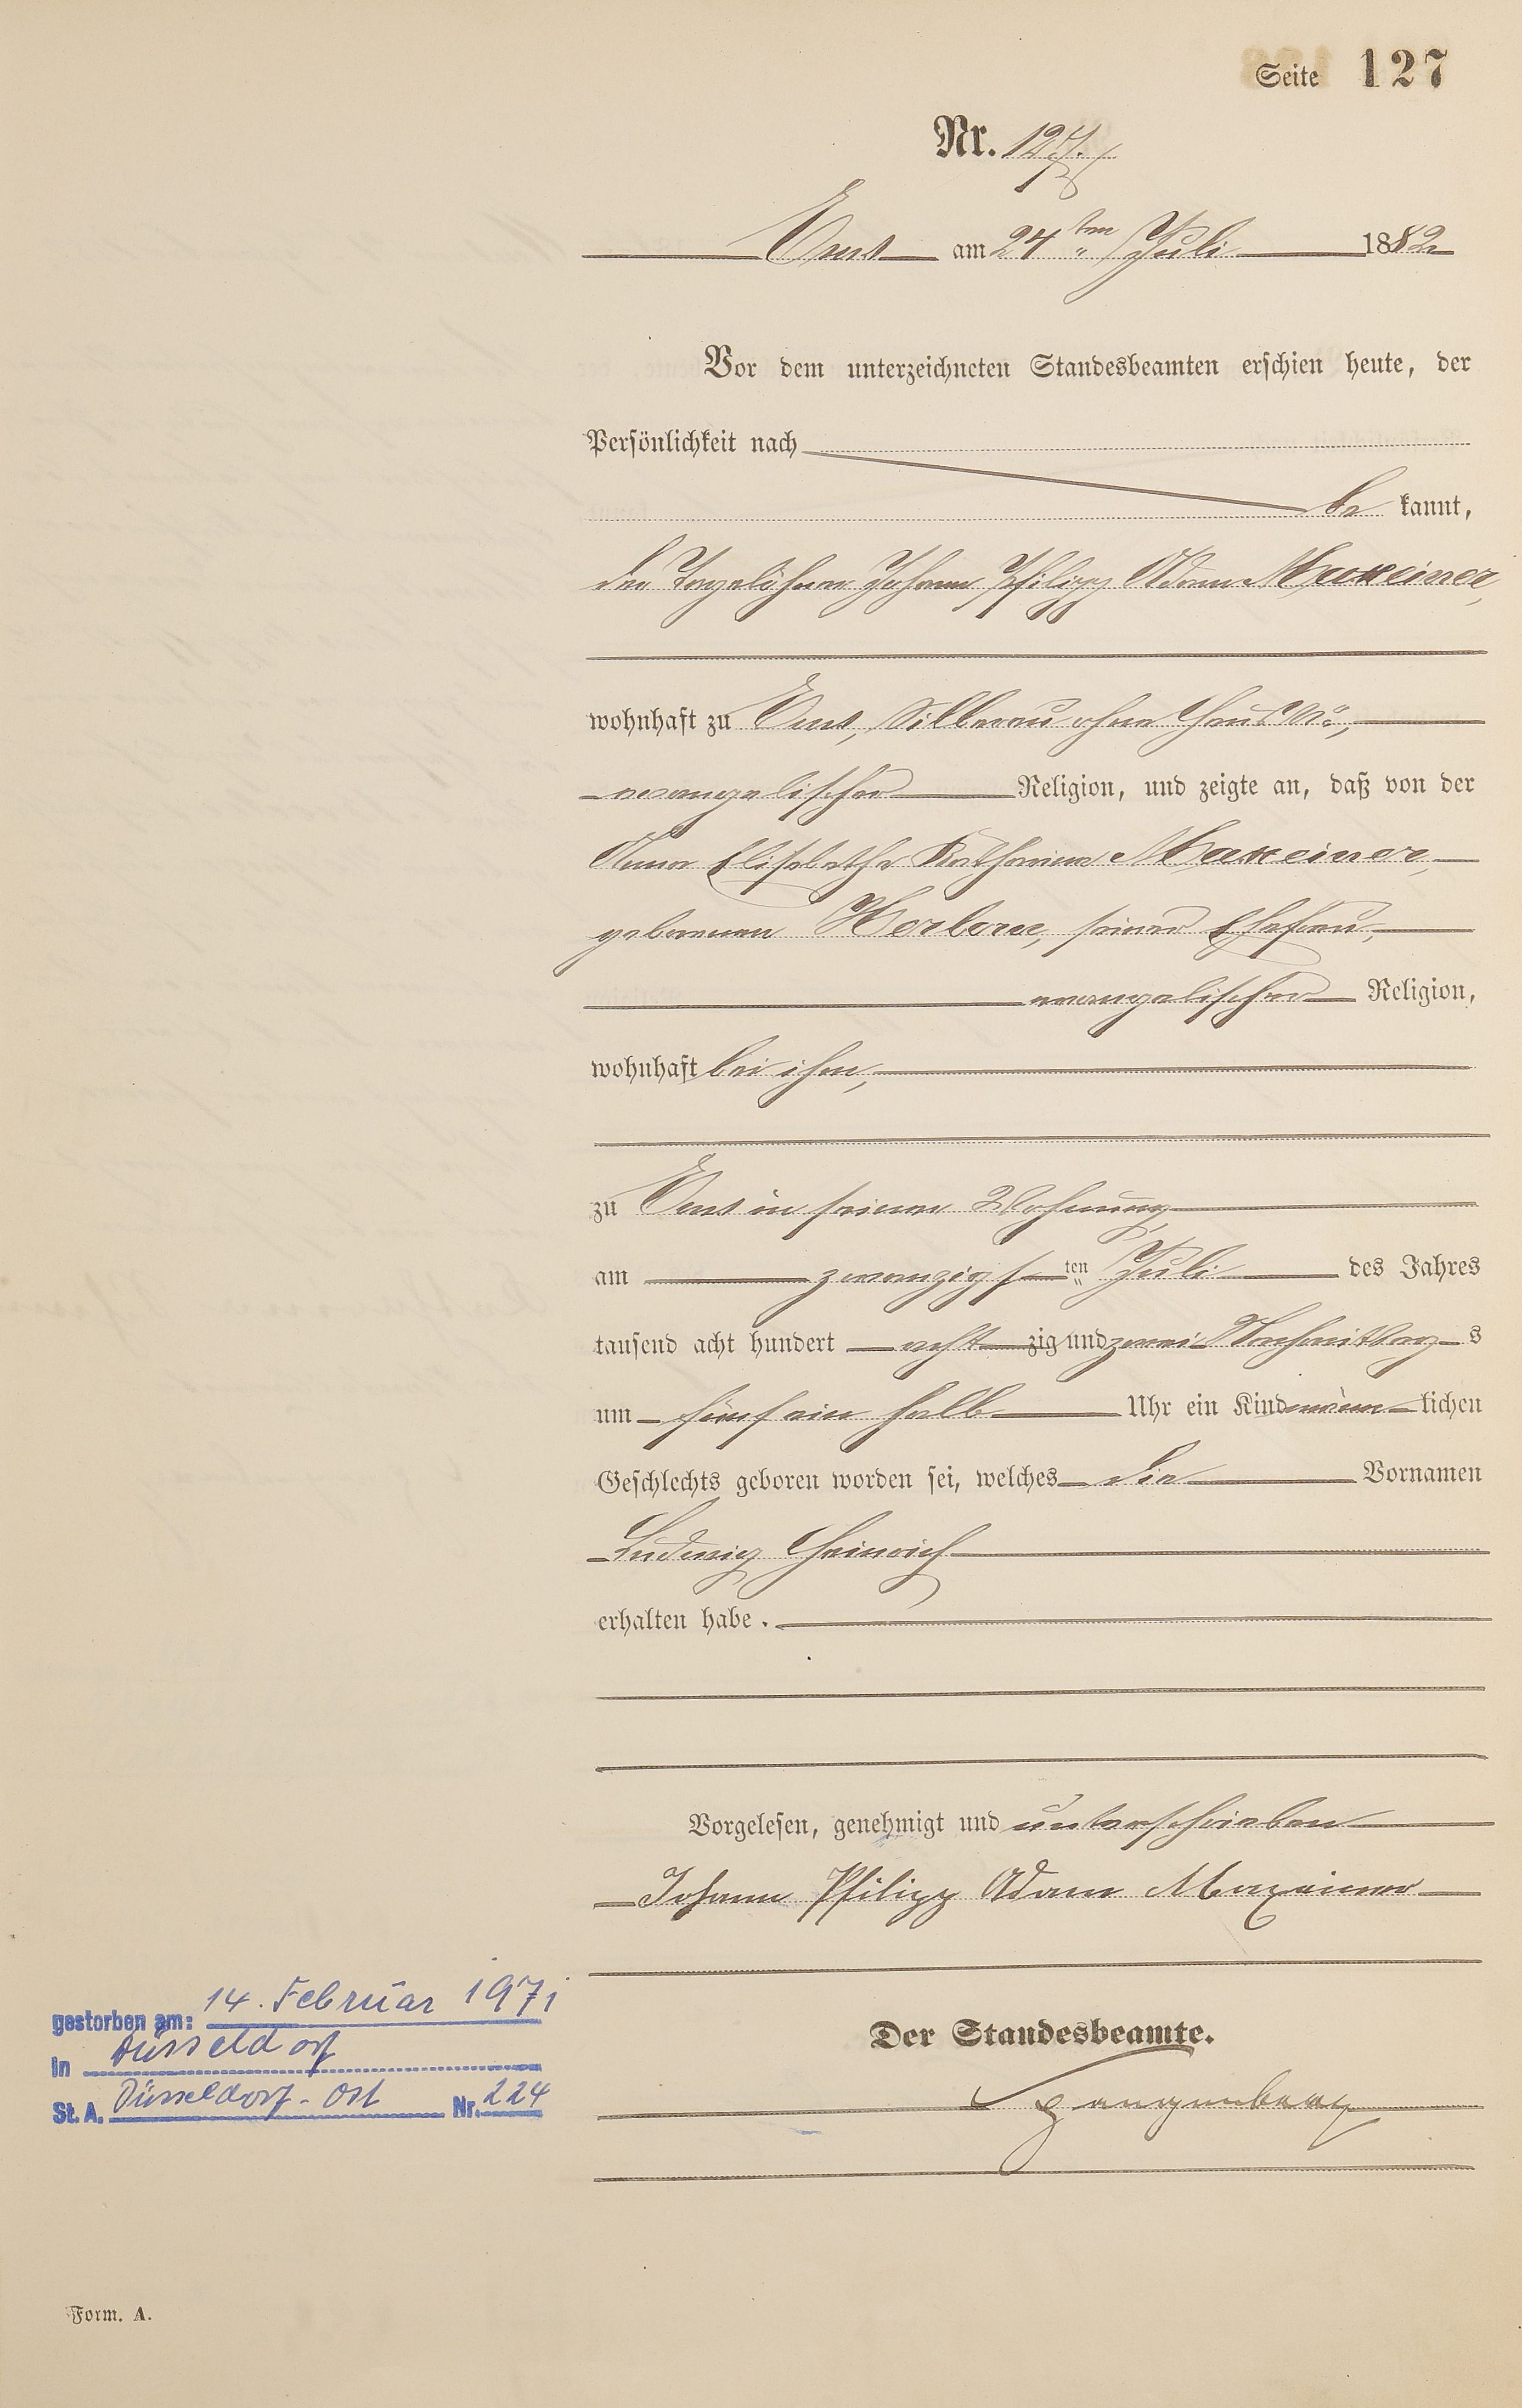 Seite 127
Nr. 127.
Ems am 24ten Juli 1882
Vor dem unterzeichneten Standesbeamten erschien heute, der
Persönlichkeit nach
be kannt,
der Tagelöhner Johann Philipp Adam Maxeiner,
wohnhaft zu Ems, Silberau ohne Haus No,
evangelischer Religion, und zeigte an, daß von der
Anna Elisabetha Katharina Maxeiner,
geborenen Herborn, seiner Ehefrau,
evangelischer Religion,
wohnhaft bei ihm,
zu Ems in seiner Wohnung,
am zwanzigsten Juli des Jahres
tausend acht hundert achtzig und zwei Nachmittags
um fünf ein halb Uhr ein Kind männlichen
Geschlechts geboren worden sei, welches die Vornamen
Ludwig Heinrich
erhalten habe.
Vorgelesen, genehmigt und unterschrieben
Johann Philipp Adam Maxeiner
gestorben am: 14. Februar 1971
in Düsseldorf
St. A. Düsseldorf-Ost Nr. 224
Der Standesbeamte.
Form. A.